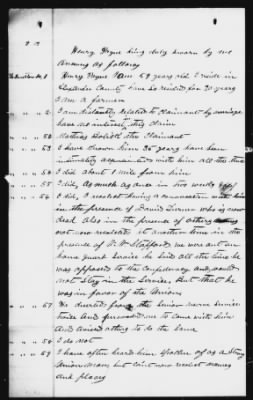 Henry Hogue being duly sworn by me
answers as follows
Henry Hogue I am 59 years old I reside in
Alexander County have so resided for 20 years
I am a farmer
2 I am distantly related to claimant by marriage
have no interest in this claim
52 Claimant
53 I have known him 35 years have been
intimately acquainted with him all the time
54 I did about 1 mile from him
55 I did, as much as once in two weeks
56 I did, I recollect having a conversation with him
in the presence of David Lennon who is now
dead also in the presence of others
not now recollected at another time in the
presence of Stafford we were out on
home guard service he said all the time he
was opposed to the Confederacy and would
not stay in the service, but that he
was in favor of the Union
57 He deserted from the senior reserve service
twice and persuaded me to come with him
and advised others to do the same
58 I do not
59 I have often heard him spoken of as a strong
Union man but can't now recollect many
and places